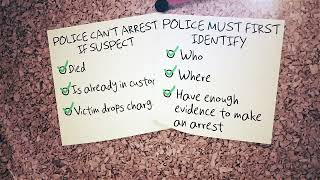 POLICE CAN'T ARREST
IF SUSPECT
Died
Is already in custo
Victim drops charg
POLICE MUST FIRST
IDENTIFY
Who
Where
Have enough
evidence to make
an arrest